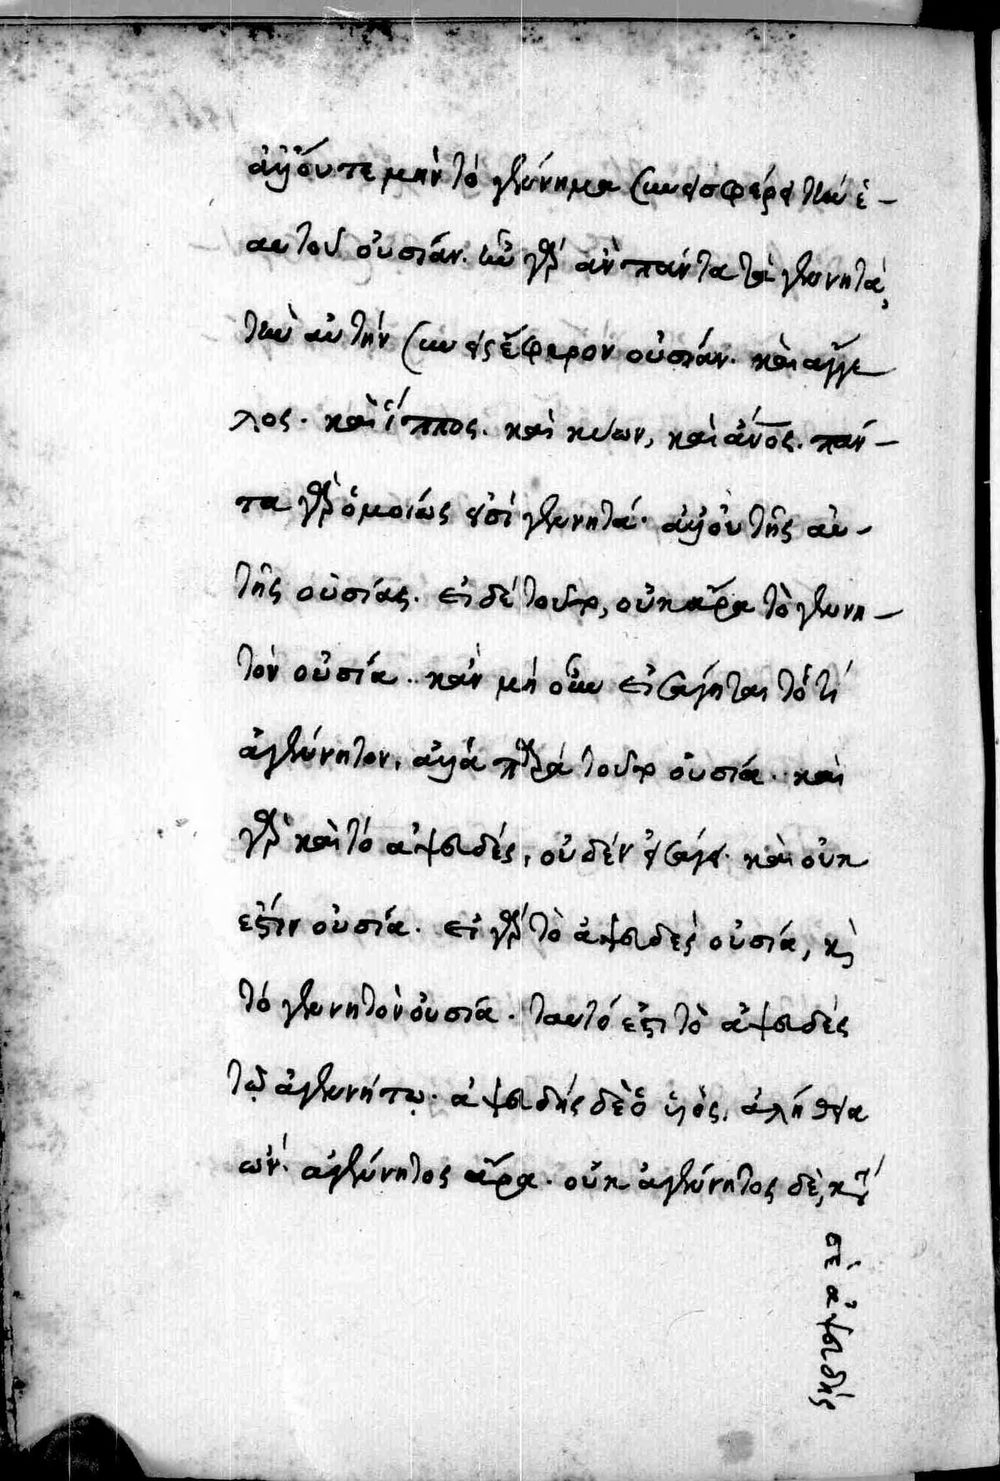 ἀλλ' οὔτε μὴν τὸ γέννημα συνεισφέρει τὴν ἑ-
αυτοῦ οὐσίαν. ἦν γὰρ ἂν πάντα τὰ γεννητὰ,
τὴν αὐτὴν συνεισέφερον οὐσίαν. καὶ ἄγγε
λος. καὶ ἵππος. καὶ κύων, καὶ ἄνος. πάν-
τα γὰρ ὁμοίως εἰσὶ γεννητά. ἀλλ' οὐ τῆς αὐ-
τῆς οὐσίας. εἰ δὲ τοῦτο, οὐκ ἄρα τὸ γεννη-
τὸν οὐσία. κἂν μὴ οὖν εἰσάγηται τὸ τί
ἀγέννητον, ἀλλὰ παρὰ τοῦτο οὐσία. καὶ
γὰρ καὶ τὸ ἀψευδές, οὐδὲν εἰσάγει. καὶ οὐκ
ἔστιν οὐσία. εἰ γὰρ τὸ ἀψευδὲς οὐσία, κ
τὸ γεννητὸν οὐσία. ταυτό ἐστι τὸ ἀψευδὲς
τῷ ἀγεννήτῳ. ἀψευδὴς δὲ ὁ υἱός, ἀλήθεια
ὤν. ἀγέννητος ἄρα. οὐκ ἀγέννητος δὲ,
ἀψευδής